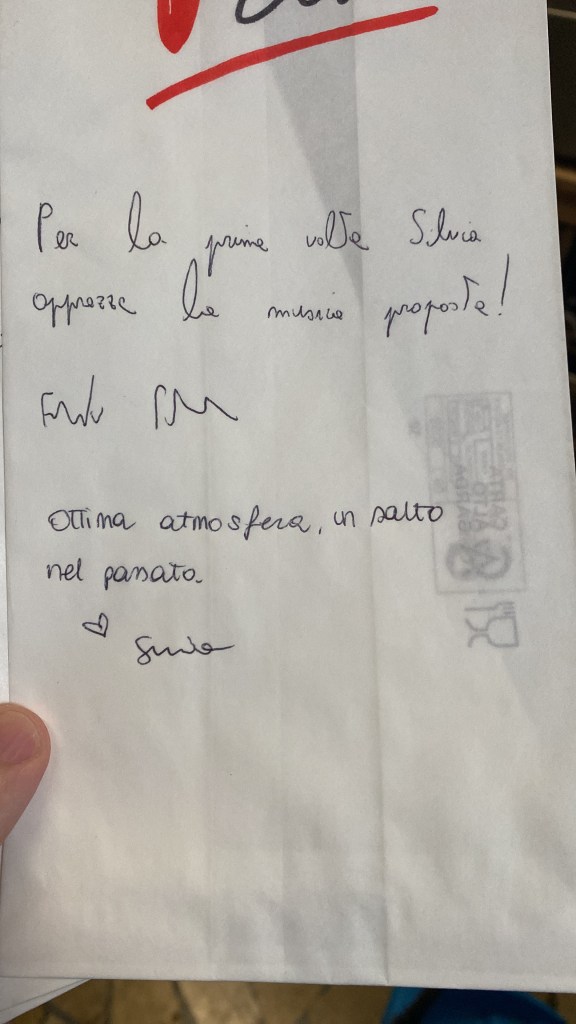 Per la prima volta Silvia
apprezza la musica proposta!
Ottima atmosfera, un salto
nel passato
Silvia